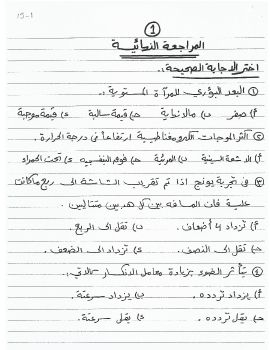 15-1
①
المراجعة النهائية
اختر الاجابة الصحيحة :.
① البعد البؤري للمرآة المستوية :.
أ) صفر ب) مالانهاية ج) قيمة سالبة د) قيمة موجبة
② اكثر الموجات الكهرومغناطيسية ارتفاعاً في درجة الحرارة.
أ) الاشعة السينية ب) المرئية ج) فوق البنفسجيه د) تحت الحمراء
③ في تجربة يونج اذا تم تقريب الشاشة الى ربع ماكانت
عليه فان المسافه بين كل هدبين متتاليين.
أ) تزداد 4 أضعاف. ب) تقل الى الربع.
ج) تقل الى النصف. د) تزداد الى الضعف.
④ يتأثر الضوء بزيادة معامل الانكسار كالاتي:.
أ) يزداد تردده. ب) يزداد سرعته.
ج) يقل تردده. د) يقل سرعته.